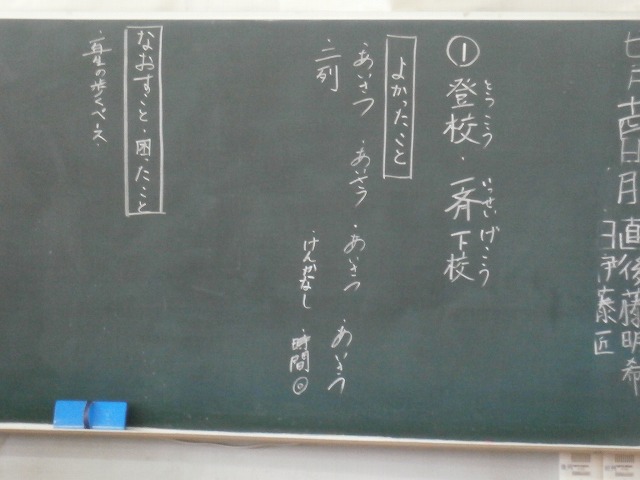 七月十四日月
日直後藤明希
伊藤匠
とうこう いっせいげこう
① 登校・一斉下校
よかったこと
・あいさつ ・あいさつ ・あいさつ ・あいさつ
・二列 ・けんかなし ・時間◎
なおすこと・困ったこと
の歩くペース